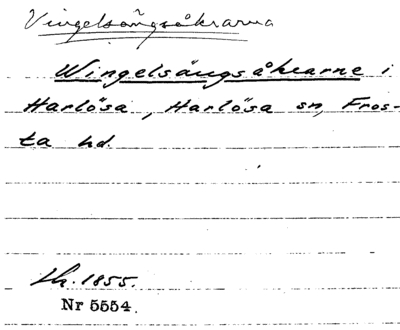 Vingelsängsåkrarna
Wingelsängsåkrarne i
Harlösa, Harlösa sn, Fros-
ta hd.
Lh. 1855.
Nr 5554.